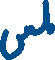 لمس